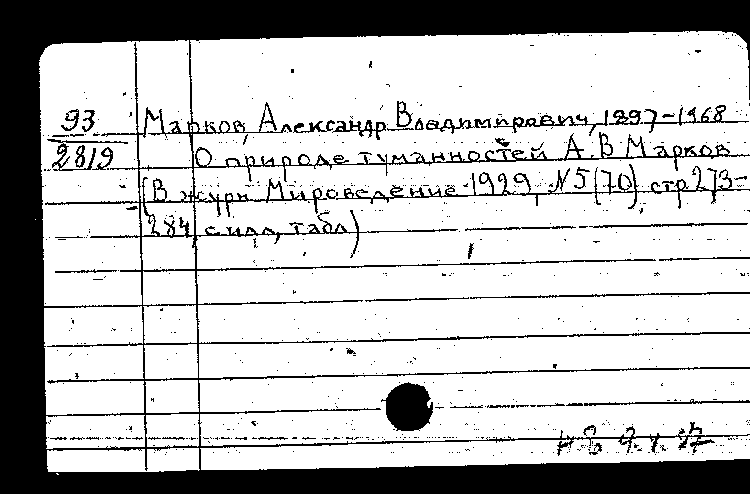 93
2819
Марков, Александр Владимирович, 1897-1968
О природе туманностей А. В Марков
(В журн Мироведение 1929, N 5(70), стр 273-
284, с илл, табл)